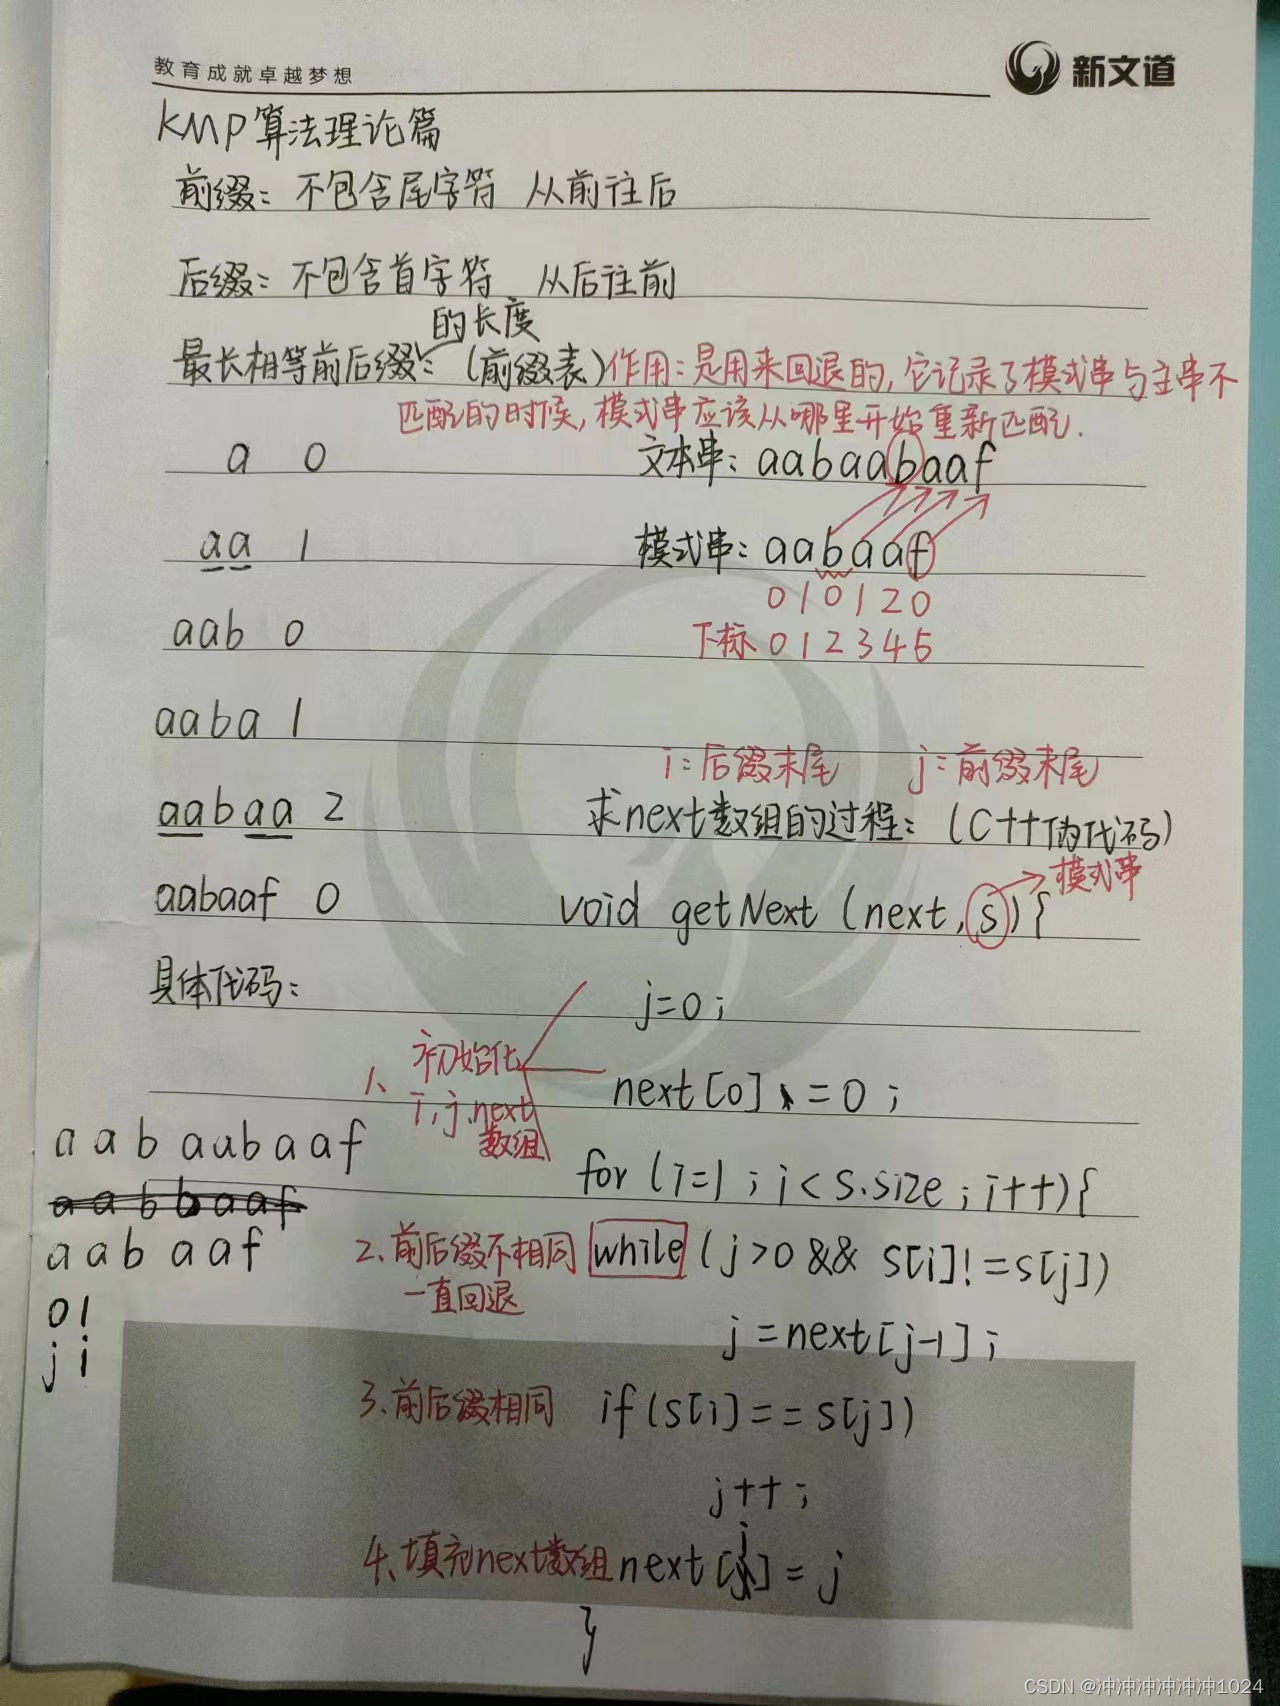 教育成就卓越梦想
新文道
KMP算法理论篇
前缀：不包含尾字符 从前往后
后缀：不包含首字符 从后往前
的长度
最长相等前后缀：(前缀表)作用：是用来回退的，它记录了模式串与主串不
匹配的时候，模式串应该从哪里开始重新匹配.
a 0
文本串：aabaabaaf
aa 1
模式串：aabaaf
010120
aab 0
下标 012345
aaba 1
i：后缀末尾 j：前缀末尾
aabaa 2
求next数组的过程：(C++伪代码)
模式串
aabaaf 0
void getNext (next, s){
具体代码：
j=0;
1、初始化
i,j,next
数组
next[0] =0;
for (i=1; i<s.size; i++){
aabaabaaf
aabbaaf
aabaaf
2、前后缀不相同 while (j>0 && s[i]!=s[j])
一直回退
01
j i
j=next[j-1];
3、前后缀相同 if(s[i]==s[j])
j++;
4、填充next数组 next[i]=j
}
CSDN @冲冲冲冲冲冲1024